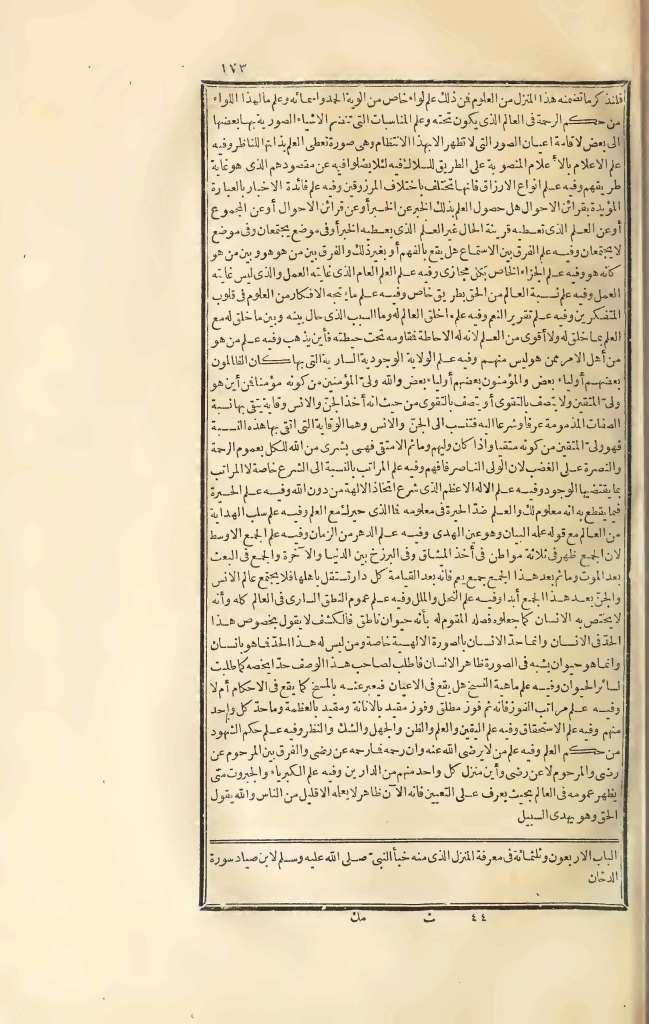 ١٧٣
فلنذكر ما تضمنه هذا المنزل من العلوم فمن ذلك علم لواء خاص من ألوية الحمد وأسمائه وعلم ما لهذا اللواء
من حكم الرحمة في العالم الذي يكون تحته وعلم المناسبات التي تنضم الاشياء الصورية بها بعضها
الى بعض لاقامة اعيان الصور التي لا تظهر الا بهذا الانتظام وهي صورة تعطي العلم بذاتها للناظر وفيه
علم الاعلام بالاعلام المنصوبة على الطريق للسلاك فيه لئلا يضلوا فيه عن مقصودهم الذي هو غاية
طريقهم وفيه علم أنواع الارزاق فانها تختلف باختلاف المرزوقين وفيه علم فائدة الاخبار بالعبارة
المؤيدة بقرائن الاحوال هل حصول العلم بذلك الخبر عن الخبر أو عن قرائن الاحوال أو عن المجموع
أو عن العلم الذي تعطيه قرينة الحال غير العلم الذي يعطيه الخبر أو في موضع يجتمعان وفي موضع
لا يجتمعان وفيه علم الفرق بين الاستماع هل يقع بالفهم أو بغير ذلك والفرق بين من هو هو وبين من هو
كانه هو وفيه علم الجزاء الخاص بكل مجازى وفيه علم العلم العام الذي غايته العمل والذي ليس غايته
العمل وفيه علم نسبة العالم من الحق بطريق خاص وفيه علم ما نتجه الافكار من العلوم في قلوب
المتفكرين وفيه علم تقرير النعم وفيه علم ما خلق العالم له وما السبب الذي حال بينه وبين ما خلق له مع
العلم بما خلق له ولا أقوى من العلم لانه له الاحاطة فمقاومه تحت حيطته فأين يذهب وفيه علم من هو
من أهل الامر ممن هو ليس منهم وفيه علم الولاية الوجودية السارية التي بها كان الظالمون
بعضهم أولياء بعض والمؤمنون بعضهم أولياء بعض والله ولي المؤمنين من كونه مؤمنا فمن أين هو
ولي المتقين ولا يتصف بالتقوى أو يتصف بالتقوى من حيث انه أخذ الجن والانس وقاية يتقي بها نسبة
الصفات المذمومة عرفا وشرعا اليه فتنسب الى الجن والانس وهما الوقاية التي اتقى بها هذه النسبة
فهو ولي المتقين من كونه متقيا واذا كان وليهم وما ثم الا متق فهي بشرى من الله للكل بعموم الرحمة
والنصرة على الغضب لان الولي الناصر فافهم وفيه علم المراتب بالنسبة الى الشرع خاصة لا المراتب
بما يقتضيها الوجود وفيه علم الاله الاعظم الذي شرع اتخاذ الالهة من دون الله وفيه علم الحيرة
فيما يقطع به انه معلوم لك والعلم ضد الحيرة في معلومه فما الذي حيرك مع العلم وفيه علم سلب الهداية
من العالم مع قوله علمه البيان وهو عين الهدى وفيه علم الدهر من الزمان وفيه علم الجمع الاوسط
لان الجمع ظهر في ثلاثة مواطن في أخذ الميثاق وفي البرزخ بين الدنيا والآخرة والجمع في البعث
بعد الموت وما ثم بعد هذا الجمع جمع يعم فانه بعد القيامة كل دار تستقل باهلها فلا يجتمع عالم الانس
والجن بعد هذا الجمع أبدا وفيه علم النحل والملل وفيه علم عموم النطق الساري في العالم كله وأنه
لا يختص به الانسان كما جعلوه فصله المقوم له بأنه حيوان ناطق فالكشف لا يقول بخصوص هذا
الحد في الانسان وانما حد الانسان بالصورة الالهية خاصة ومن ليس له هذا الحد فما هو بانسان
وانما هو حيوان يشبه في الصورة ظاهر الانسان فاطلب لصاحب هذا الوصف حدا يخصه كما طلبت
لسائر الحيوان وفيه علم ماهية النسخ هل يقع في الاعيان فيعبر عنه بالمسخ كما يقع في الاحكام أم لا
وفيه علم مراتب الفوز فانه ثم فوز مطلق وفوز مقيد بالابانة ومقيد بالعظمة وما حد كل واحد
منهم وفيه علم الاستحقاق وفيه علم اليقين والعلم والظن والجهل والشك والنظر وفيه علم حكم الشهود
من حكم العلم وفيه علم من لا يرضى الله عنه وان رحمه فما رحمه عن رضى والفرق بين المرحوم عن
رضى والمرحوم لا عن رضى وأين منزل كل واحد منهم من الدارين وفيه علم الكبرياء والجبروت متى
يظهر عمومه في العالم بحيث يعرف على التعيين فانه الآن ظاهر لا يعلمه الا قليل من الناس والله يقول
الحق وهو يهدي السبيل
الباب الاربعون وثلثمائة في معرفة المنزل الذي منه خبأ النبي صلى الله عليه وسلم لابن صياد سورة
الدخان
٤٤ ث مك